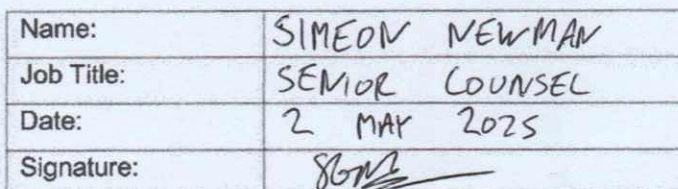 Name: SIMEON NEWMAN
Job Title: SENIOR COUNSEL
Date: 2 MAY 2025
Signature: